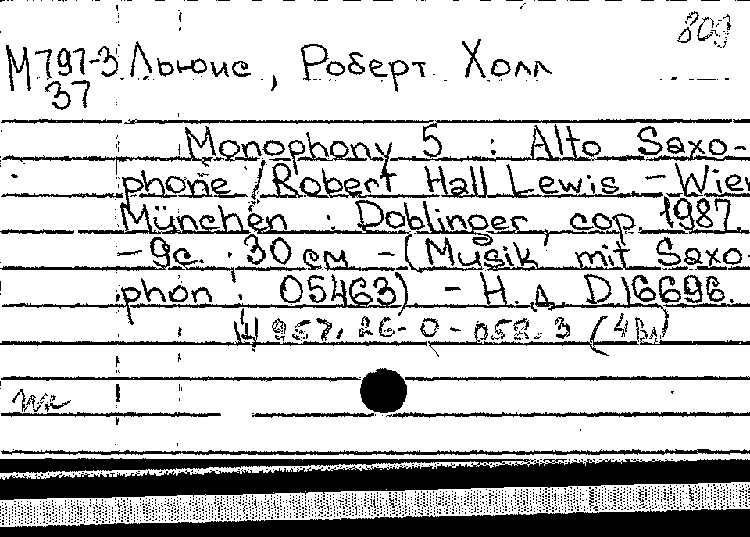 809
М797-3 Льюис, Роберт Холл
37
Monophony 5 : Alto Saxo-
phone / Robert Hall Lewis. – Wien
München : Doblinger, cop. 1987.
– 9с. ; 30 см – (Musik mit Saxo-
phon ; 05463) – Н. д. D.16696.
957. 26-0-058.3